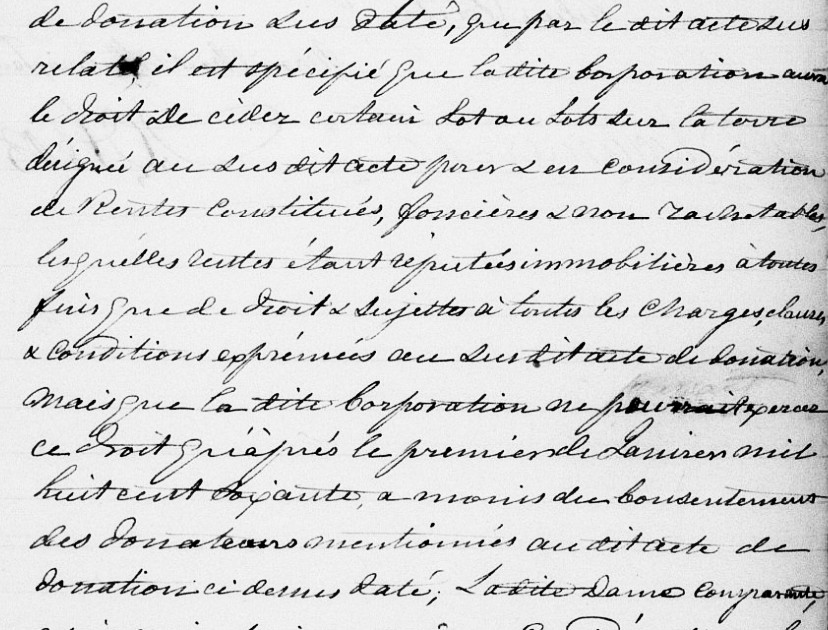 de donation sus daté, que par le dit acte sus
relaté, il est spécifié que la dite Corporation aura
le droit de céder certain Lot ou Lots sur la terre
désignée au sus dit acte pour & en considération
de Rentes Constituées, foncières & non rachetables,
lesquelles rentes étant réputées immobilières à toutes
fins que de droit & sujettes à toutes les charges, clauses
& conditions exprimées au sus dit acte de donation,
mais que la dite Corporation ne pourrait exercer
ce droit qu'après le premier de Janvier mil
huit cent soixante, a moins du Consentement
des donateurs mentionnés au dit acte de
donation ci dessus daté; La dite Dame comparante,